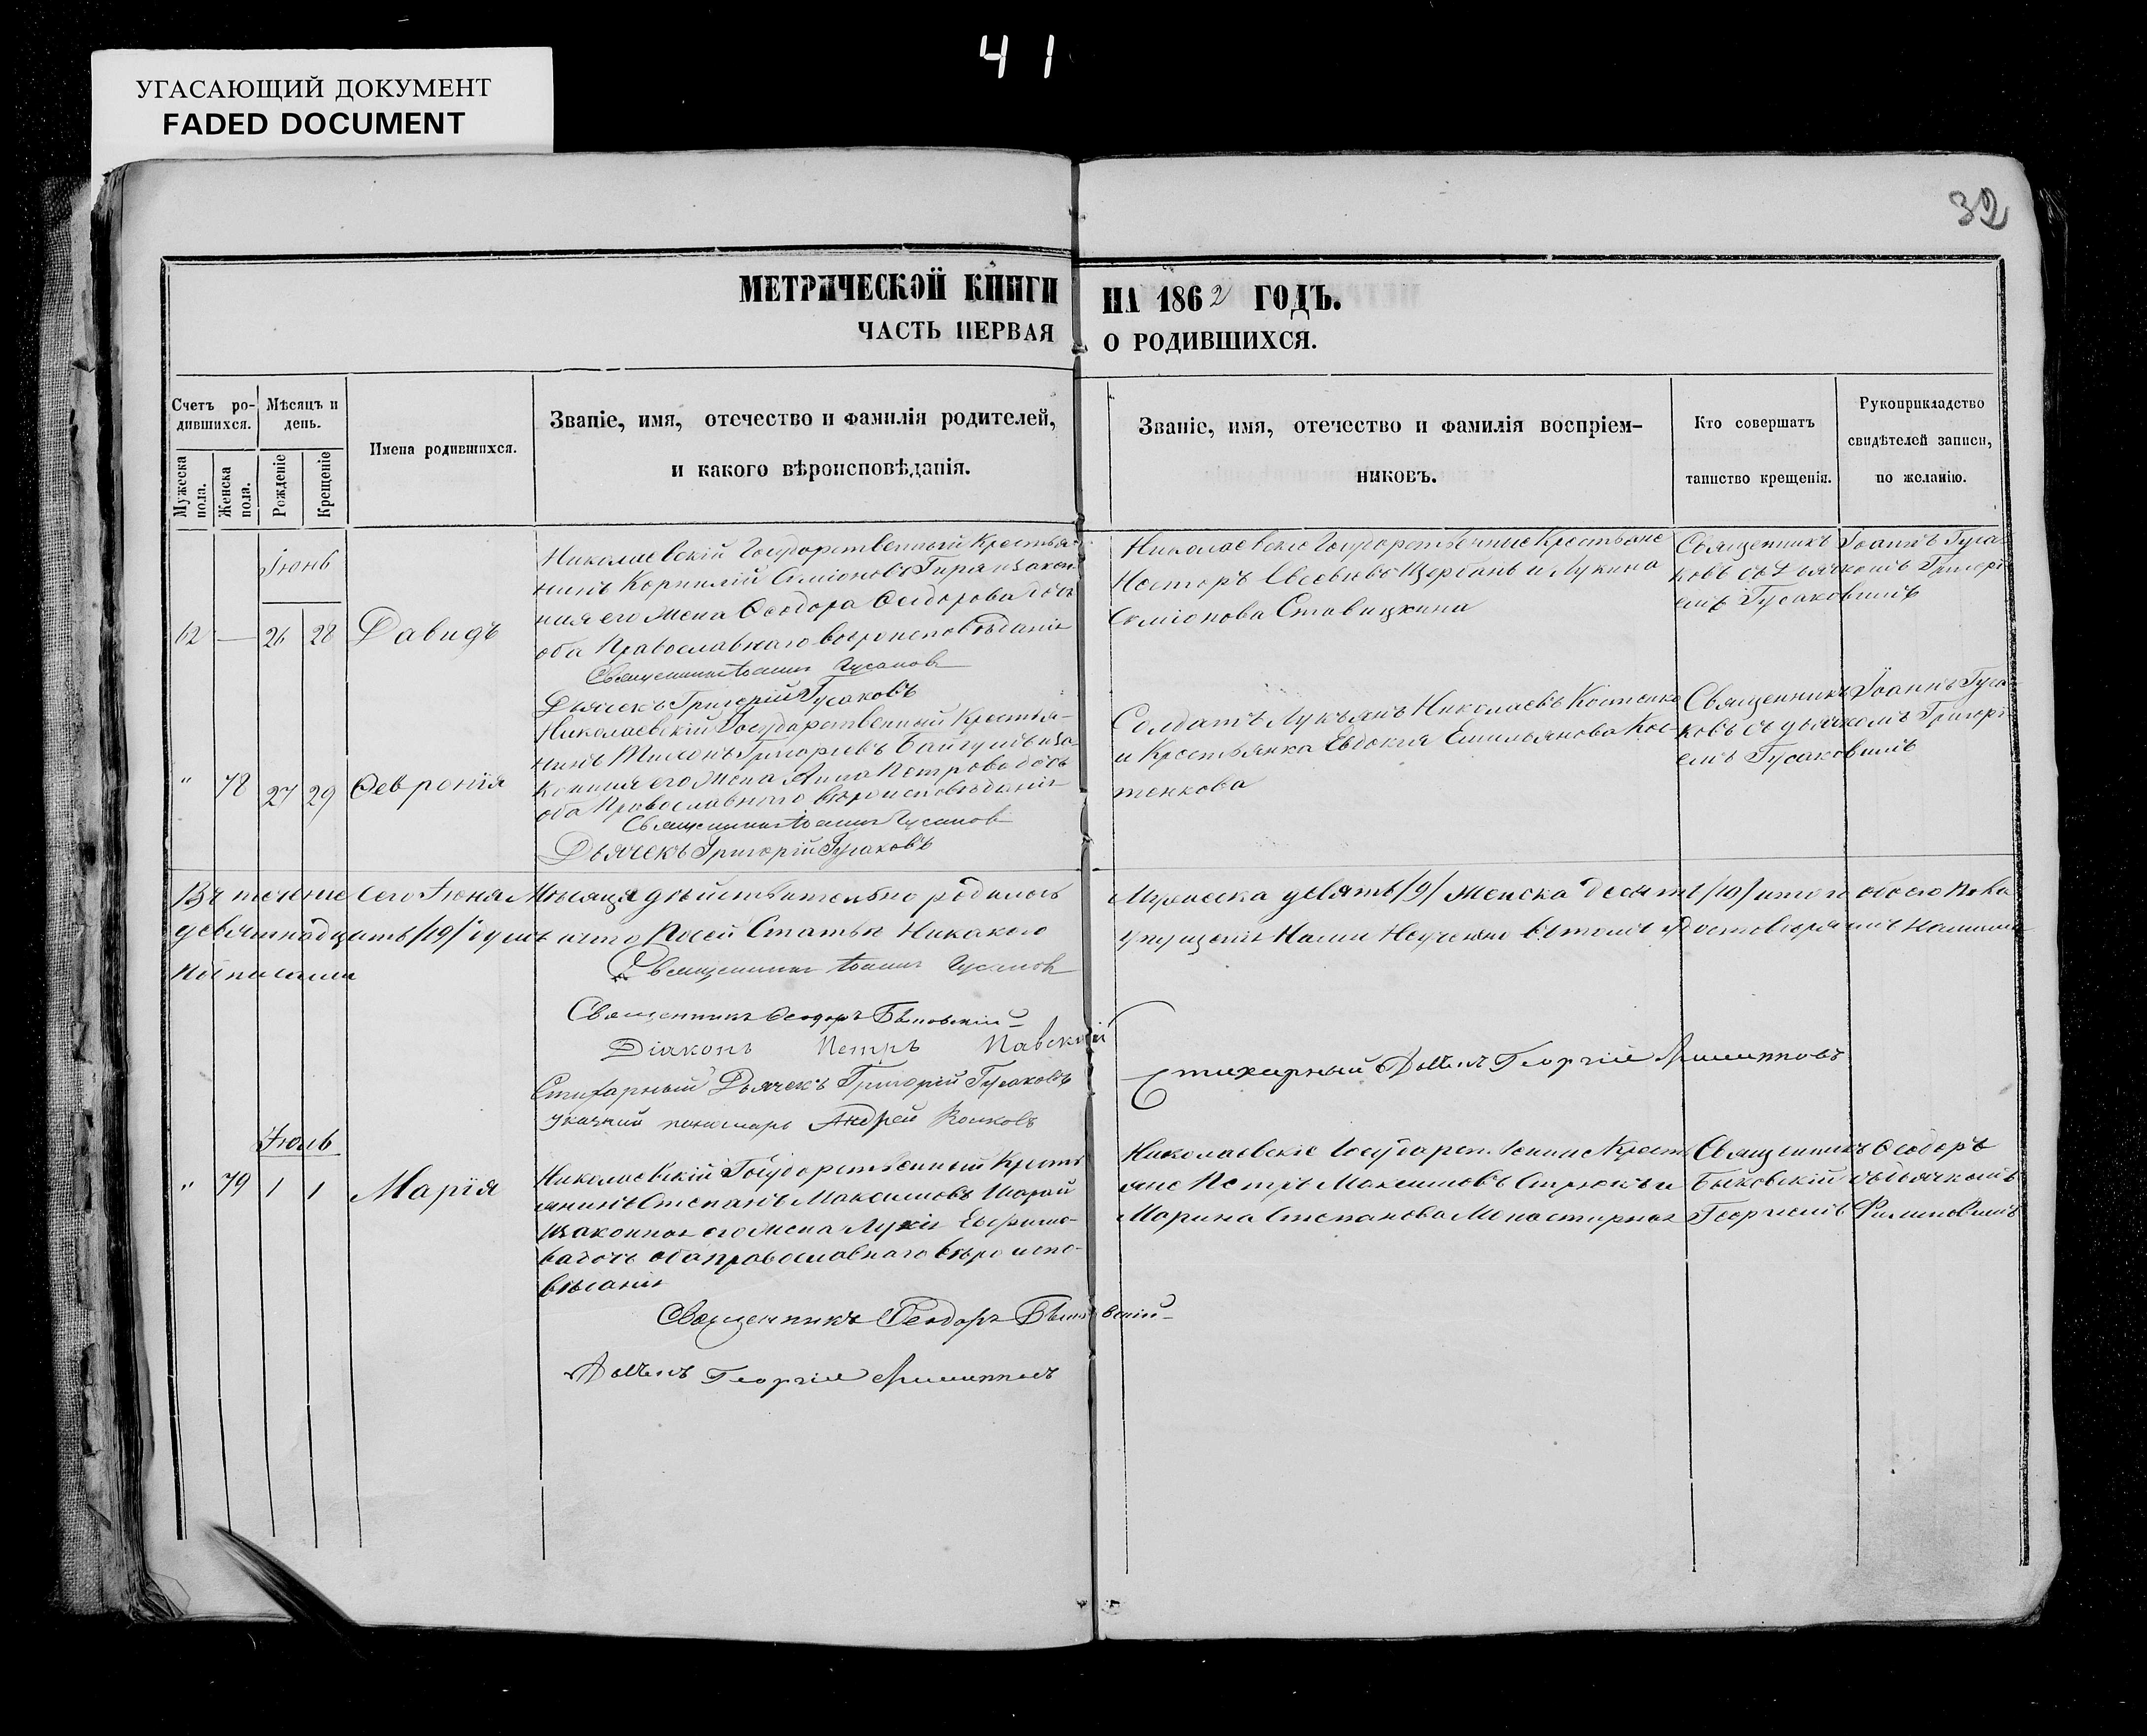 41
УГАСАЮЩИЙ ДОКУМЕНТ
FADED DOCUMENT
32
МЕТРИЧЕСКОЙ КНИГИ НА 1862 ГОДЪ.
ЧАСТЬ ПЕРВАЯ О РОДИВШИХСЯ.
Счетъ ро-
дившихся.
Мужеска пола.
Женска пола.
Мѣсяцъ и
день.
Рожденіе
Крещеніе
Имена родившихся.
Званіе, имя, отечество и фамилія родителей,
и какого вѣроисповѣданія.
Званіе, имя, отечество и фамилія воспріем-
никовъ.
Кто совершатъ
таинство крещенія.
Рукоприкладство
свидѣтелей записи,
по желанію.
Іюнь
62 — 26 28 Давидъ
Николаевскій Государственный Крестья-
нинъ Корнилій Симіоновъ и закон
ная его жена Ѳеодора Ѳедорова
оба Православнаго вѣроисповѣданія
Священникъ Іоаннъ Гусаковъ
Дьячекъ Григорій Гусаковъ
Николаевскіе Государственные Крестьяне
Несторъ Евсевіевъ Щербань и Лукина
Симіонова Ставицкина
Священникъ Іоаннъ Гуса
ковъ съ Дьячкомъ Григорі
емъ Гусаковымъ
" 78 27 29 Ѳевронія
Николаевскій Государственный Крестья-
нинъ Григорьевъ и за-
конная его жена Анна Петрова
оба Православнаго вѣроисповѣданія
Священникъ Іоаннъ Гусаковъ
Дьячекъ Григорій Гусаковъ
Солдатъ Лукьянъ Николаевъ Костенко
и Крестьянка Евдокія Емильянова Кос-
тенкова
Священникъ Іоаннъ Гуса
ковъ съ дьячкомъ Григорі
емъ Гусаковымъ
Въ теченіе сего Іюня Мѣсяца дѣйствительно родилось Мужеска девять /9/ Женска десять /10/ итого обоего пола
девятнадцать /19/ душъ и что по сей Статьи Никакого упущенія Нами Неучинено въ томъ
Священникъ Іоаннъ Гусаковъ
Священникъ Ѳеодоръ Быковскій
Діаконъ Петръ Павскій
Стихарный Дьячекъ Григорій Гусаковъ
Стихарный Дьячекъ Георгій Филипповъ
указный пономарь Андрей Волковъ
Іюль
" 79 1 1 Марія
Николаевскій Государственный Кресть
янинъ Степанъ Максимовъ
Законная его жена Ефимо-
ва оба православнаго вѣроиспо-
вѣданія
Священникъ Ѳеодоръ Быковскій
Дьячекъ Георгій Филипповъ
Николаевскіе Государственные Кресть
яне Петръ Максимовъ и
Марина Степанова Монастирная
Священникъ Ѳеодоръ
Быковскій съ дьячкомъ
Георгіемъ Филиповымъ